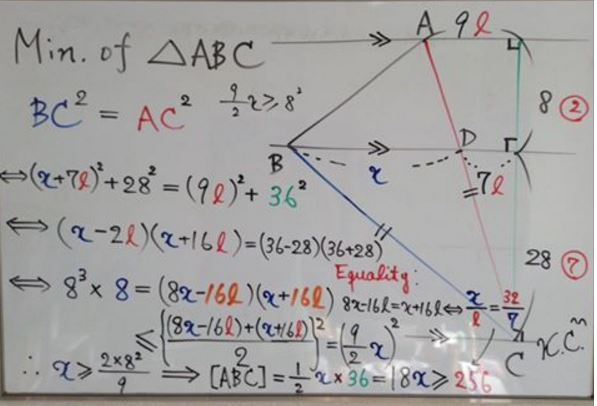 Min. of △ABC
BC² = AC² 9/2 x ≥ 8²
⇔ (x+7l)² + 28² = (9l)² + 36²
⇔ (x-2l)(x+16l) = (36-28)(36+28)
⇔ 8³ × 8 = (8x-16l)(x+16l)
Equality:
8x-16l = x+16l ⇔ x/l = 32/7
≤ {((8x-16l)+(x+16l))/2}² = (9/2 x)²
∴ x ≥ 2×8²/9 ⟹ [ABC] = 1/2 x × 36 = 18x ≥ 256
A 9l
8 ②
B x D
=7l
28 ⑦
C K.C.